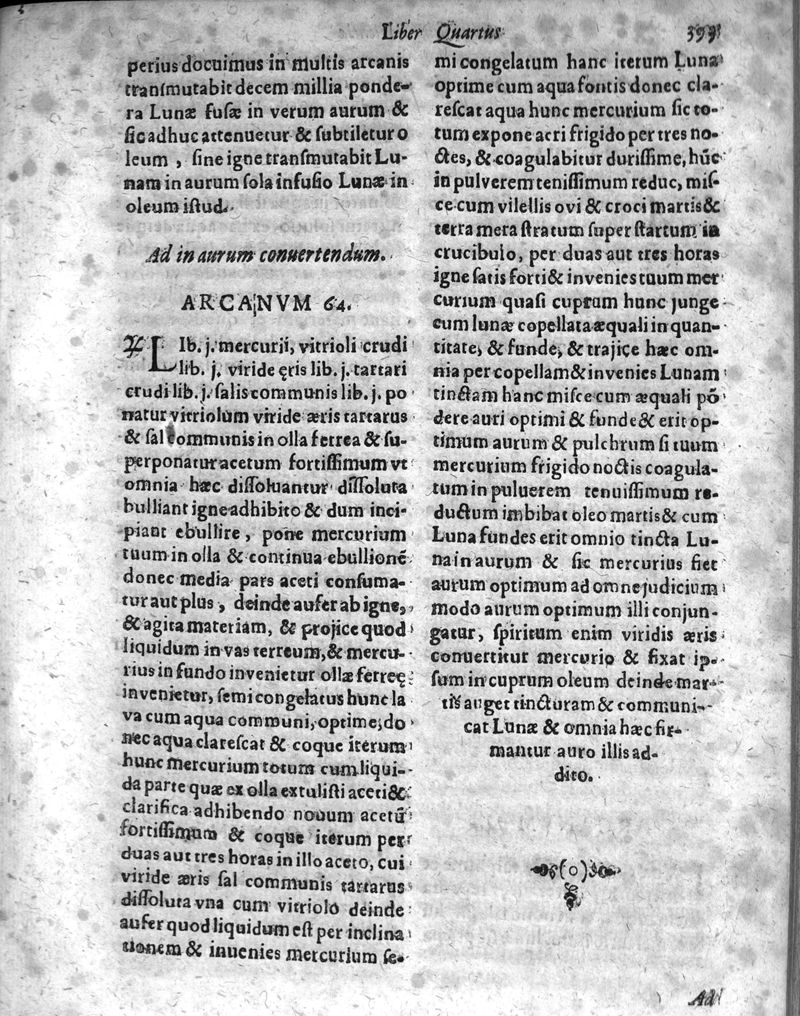 Liber Quartus 399
perius docuimus in multis arcanis
tranſmutabit decem millia ponde-
ra Lunæ fuſæ in verum aurum &
ſic adhuc attenuetur & ſubtiletur o
leum , ſine igne tranſmutabit Lu-
nam in aurum ſola infuſio Lunæ in
oleum iſtud.
Ad in aurum conuertendum.
ARCANVM 64.
LIb. j. mercurii, vitrioli crudi
lib. j. viride ęris lib. j. tartari
crudi lib. j. ſalis communis lib. j. po
natur vitriolum viride æris tartarus
& ſal communis in olla ferrea & ſu-
perponatur acetum fortiſſimum vt
omnia hæc diſſoluantur diſſoluta
bulliant igne adhibito & dum inci-
piant ebullire , pone mercurium
tuum in olla & continua ebullionē
donec media pars aceti conſuma-
tur aut plus , deinde aufer ab igne,
& agita materiam, & projice quod
liquidum in vas terreum, & mercu-
rius in fundo invenietur ollæ ferreę
invenietur, ſemi congelatus hunc la
va cum aqua communi, optime, do
nec aqua clareſcat & coque iterum
hunc mercurium totum cum liqui-
da parte quæ ex olla extuliſti aceti &
clarifica adhibendo nouum acetū
fortiſſimum & coque iterum per
duas aut tres horas in illo aceto, cui
viride æris ſal communis tartarus
diſſoluta vna cum vitriolo deinde
aufer quod liquidum eſt per inclina
tionem & inuenies mercurium ſe-
mi congelatum hanc iterum Luna
optime cum aqua fontis donec cla-
reſcat aqua hunc mercurium ſic to-
tum expone acri frigido per tres no-
ctes, & coagulabitur duriſſime, hūc
in pulverem teniſſimum reduc, miſ-
ce cum vilellis ovi & croci martis &
terra mera ſtratum ſuper ſtartum in
crucibulo, per duas aut tres horas
igne ſatis forti & invenies tuum mer
curium quaſi cuprum hunc junge
cum lunæ copellata æquali in quan-
titate, & funde, & trajice hæc om-
nia per copellam & invenies Lunam
tinctam hanc miſce cum æquali pō
dere auri optimi & funde & erit op-
timum aurum & pulchrum ſi tuum
mercurium frigido noctis coagula-
tum in puluerem tenuiſſimum re-
ductum imbibat oleo martis & cum
Luna fundes erit omnio tincta Lu-
na in aurum & ſic mercurius fiet
aurum optimum ad omne judicium
modo aurum optimum illi conjun-
gatur, ſpiritum enim viridis æris
conuertitur mercurio & fixat ip-
ſum in cuprum oleum deinde mar-
tis auget tincturam & communi-
cat Lunæ & omnia hæc fir-
mantur auro illis ad-
dito.
Ad